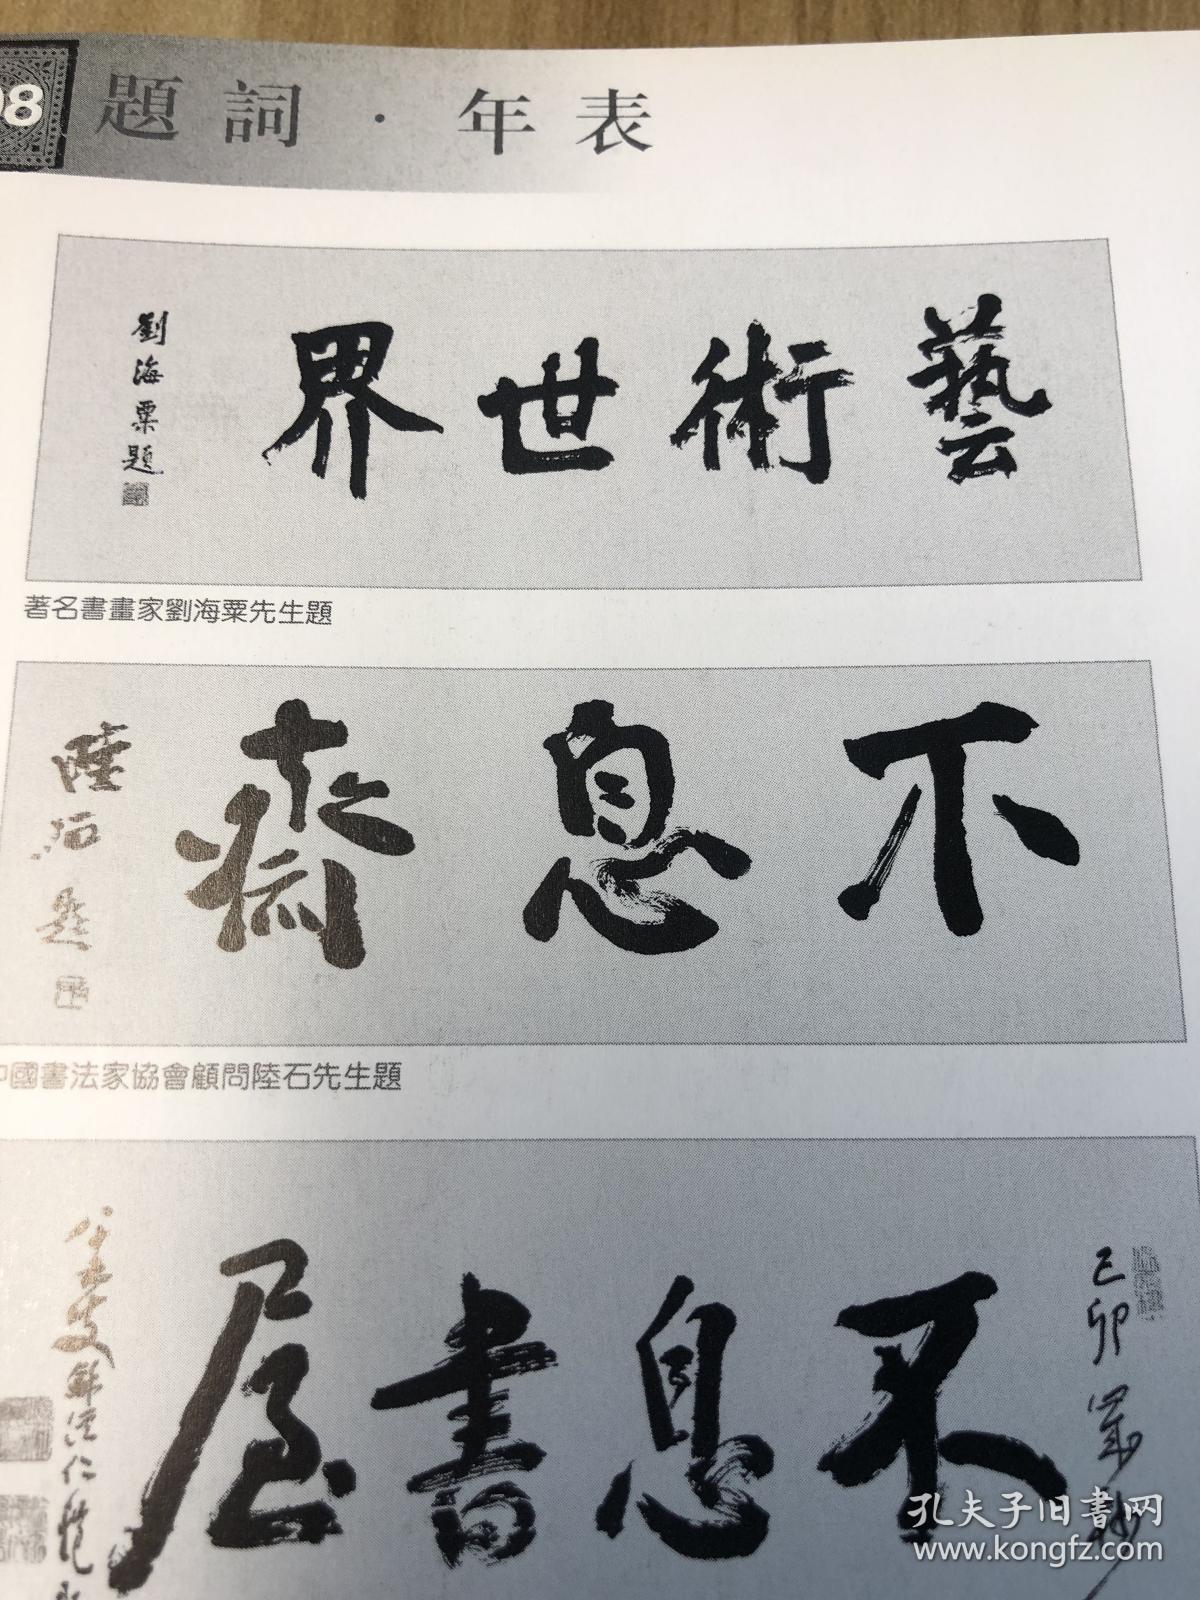 08
題詞·年表
藝術世界
劉海粟題
著名書畫家劉海粟先生題
不息齋
陸石題
中國書法家協會顧問陸石先生題
己卯
不息書屋
孔夫子旧书网
www.kongfz.com